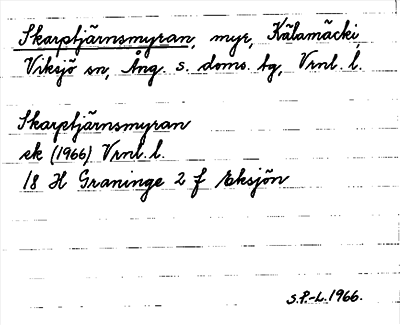 Skarptjärnsmyran, myr, Kälamäcki,
Viksjö sn, Ång. s. doms. tg, Vrnl. l.
Skarptjärnsmyran
ek (1966) Vrnl. l.
18 H Graninge 2 f Eksjön
S.P.-L. 1966.